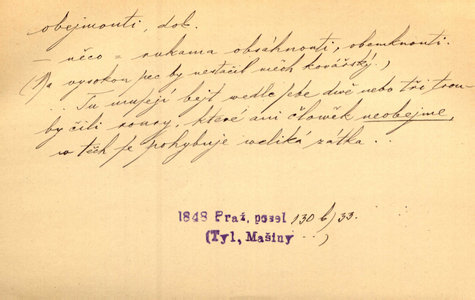 obejmouti, dok.
— něco = rukama obsáhnouti, obemknouti.
(Na vysokou pec by nestačil měch kovářský,)
... Tu musejí bejt vedle sebe dvě nebo tři trou-
by čili roury, které ani člowěk neobejme,
w těch se pohybuje weliká zátka...
1848 Praž. posel 130 b/33.
(Tyl, Mašiny ...)